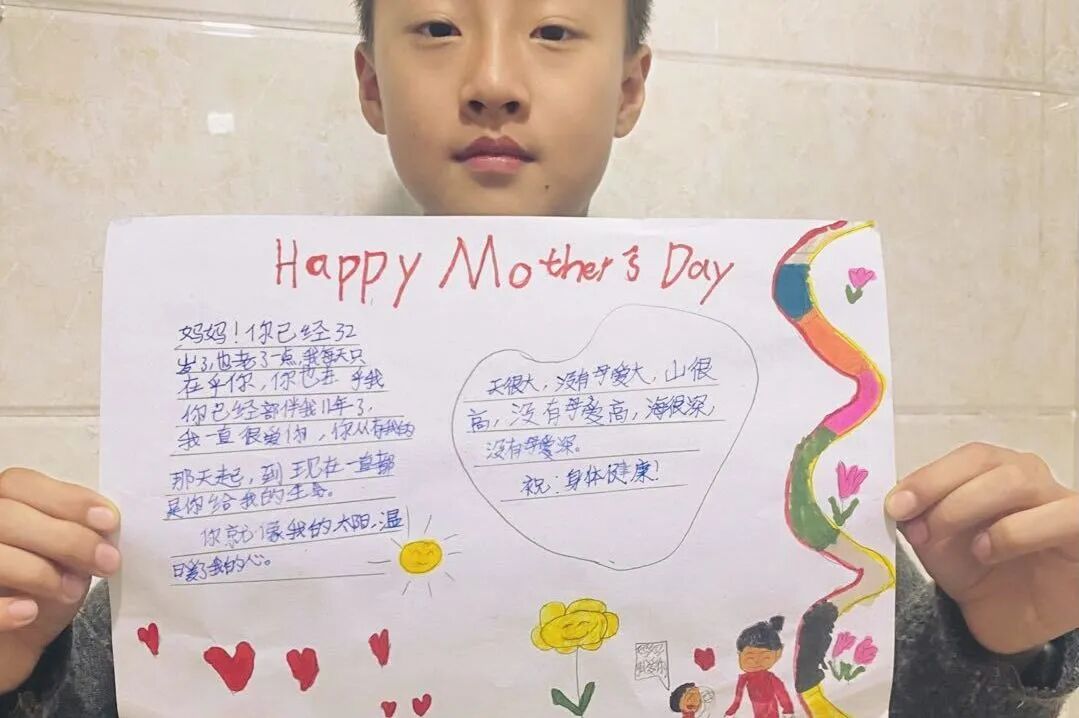 Happy Mother's Day
妈妈！你已经32
岁了,也老了一点,我每天只
在乎你，你也在乎我
你已经部伴我11年了,
我一直很爱你，你从有我的
那天起，到现在一直都
是你给我的生命。
你就像我的太阳，温
暖了我的心。
天很大，没有母爱大，山很
高，没有母爱高，海很深，
没有母爱深。
祝：身体健康！